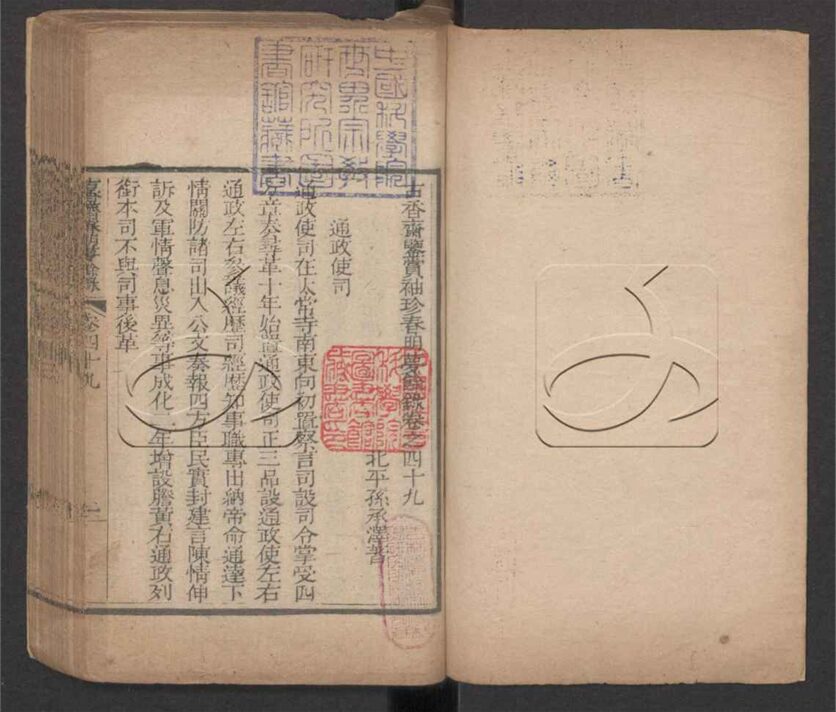 古香齋鑒賞袖珍春明夢餘錄卷之四十九
北平孫承澤著
通政使司
通政使司在太常寺南東向初置察言司設司令掌受四
方章奏尋革十年始置通政使司正三品設通政使左右
通政左右參議經歷司經歷知事職專出納帝命通達下
情關防諸司出入公文奏報四方臣民實封建言陳情伸
訴及軍情聲息災異等事成化二年增設謄黃右通政列
銜本司不與司事後革
卷四十九
一
中國科學院
世界宗教
研究所圖
書館藏書